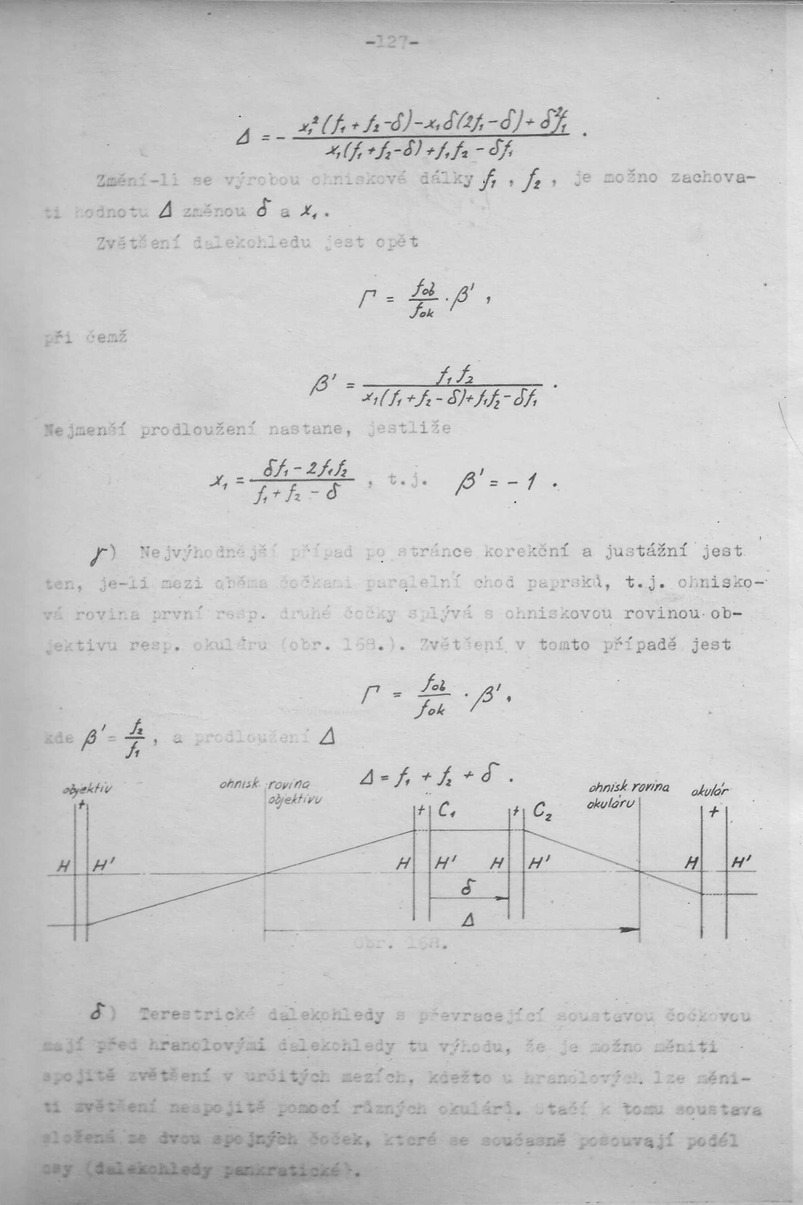 -127-
Δ = - \frac{x_1^2(f_1+f_2-δ)-x_1δ(2f_1-δ)+δ^2f_1}{x_1(f_1+f_2-δ)+f_1f_2-δf_1} .
Změní-li se výrobou ohniskové dálky f₁ , f₂ , je možno zachova-
ti hodnotu Δ změnou δ a x₁.
Zvětšení dalekohledu jest opět
Γ = \frac{f_{ob}}{f_{ok}} · β' ,
při čemž
β' = \frac{f_1f_2}{x_1(f_1+f_2-δ)+f_1f_2-δf_1} .
Nejmenší prodloužení nastane, jestliže
x₁ = \frac{δf_1-2f_1f_2}{f_1+f_2-δ} , t.j. β' = - 1 .
γ) Nejvýhodnější případ po stránce korekční a justážní jest
ten, je-li mezi oběma čočkami paralelní chod paprsků, t.j. ohnisko-
vá rovina první resp. druhé čočky splývá s ohniskovou rovinou ob-
jektivu resp. okuláru (obr. 168.). Zvětšení v tomto případě jest
Γ = \frac{f_{ob}}{f_{ok}} · β',
kde β' = \frac{f_2}{f_1} , a prodloužení Δ
Δ = f₁ + f₂ + δ .
objektiv
ohnisk. rovina
objektivu
ohnisk. rovina
okuláru
okulár
+ + C₁ + C₂ +
H H' H H' H H' H H'
δ
Δ
Obr. 168.
δ) Terestrické dalekohledy s převracející soustavou čočkovou
mají před hranolovými dalekohledy tu výhodu, že je možno měniti
spojitě zvětšení v určitých mezích, kdežto u hranolových lze měni-
ti zvětšení nespojitě pomocí různých okulárů. Stačí k tomu soustava
složená ze dvou spojných čoček, které se současně posouvají podél
osy (dalekohledy pankratické).